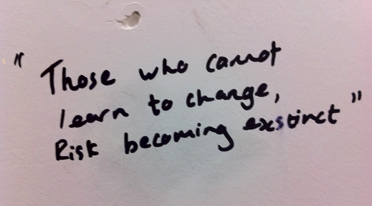 " Those who cannot
learn to change,
Risk becoming exstinct "